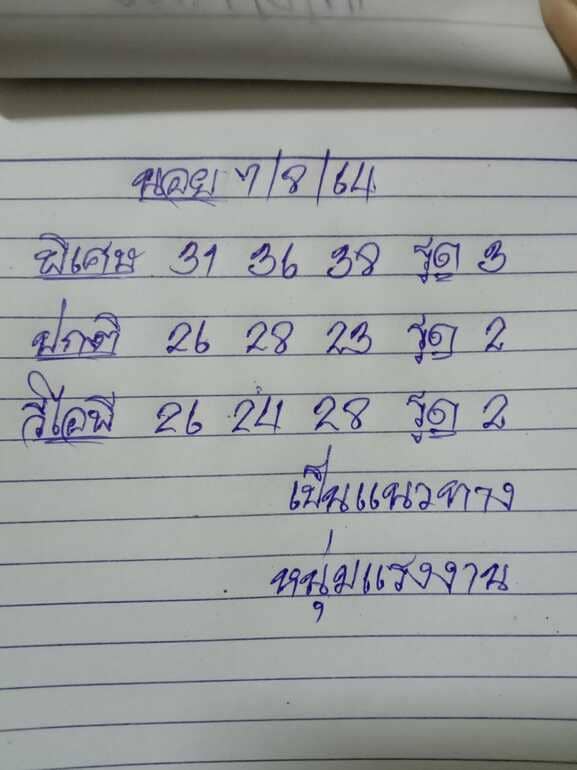 นอย 7/8/64
พิเศษ 31 36 38 รูด 3
ปกติ 26 28 23 รูด 2
วีไอพี 26 24 28 รูด 2
เป็นแนวทาง
หนุ่มแรงงาน